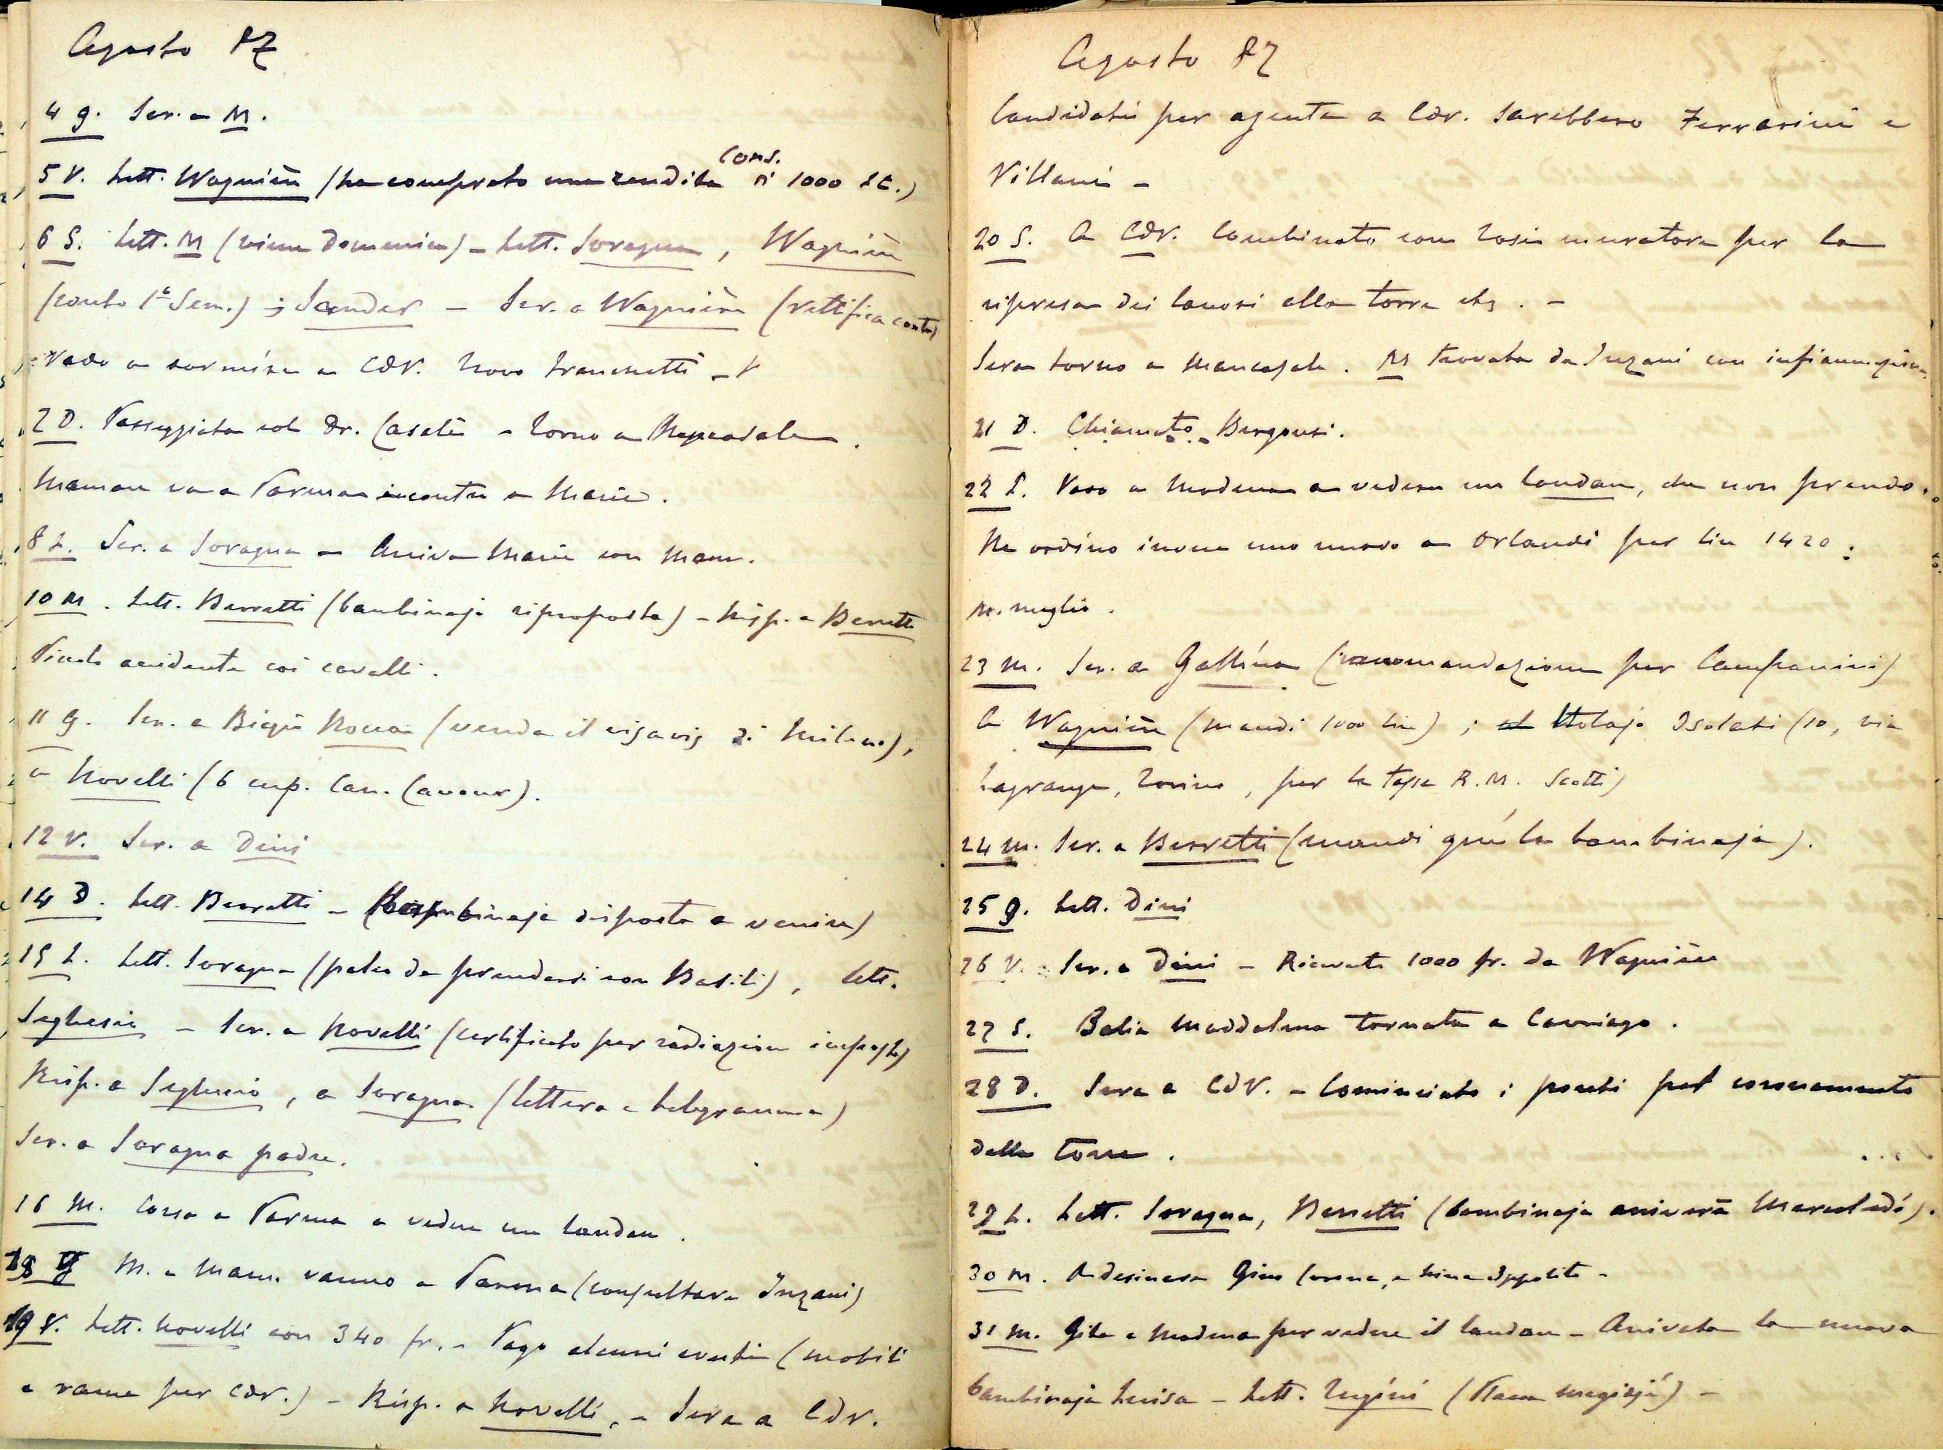 Agosto 87
4 g. Scr. a M.
5 V. Lett. Wagnière (ha comprato una rendita cons. di 1000 St.)
6 S. Lett. M (viene Domenica) - Lett. Soragna, Wagnière
(conto 1° Sem.) ; Sander - Scr. a Wagnière (rettifica conto)
Vado a dormire a CdV. Trovo Franchetti -
7 D. Passeggiata col Dr. Casali - Torno a Mancasale.
Maman va a Parma incontro a Marie.
8 L. Scr. a Soragna - Arriva Marie con Mam.
10 M. Lett. Berretti (bambinaja riproposta) - Risp. a Berretti
Piccolo accidente coi cavalli.
11 g. Scr. a Bigio Rocca (venda il visavis di Milano),
a Novelli (6 cup. Can. Cavour).
12 V. Scr. a Dini
14 D. Lett. Berretti - (bambinaja disposta a venire)
15 L. Lett. Soragna (palco da prendersi con Basili), lett.
Seghesio - Scr. a Novelli (certificato per radiazione imposta)
Risp. a Seghesio, a Soragna (lettera e telegramma)
Scr. a Soragna padre.
16 M. Corsa a Parma a vedere un landau.
18 g M. e Mam. vanno a Parma (consultare Inzani)
19 V. Lett. Novelli con 340 fr. - Pago alcuni conti (mobili
e rame per CdV.) - Risp. a Novelli. - Sera a CdV.
Agosto 87
Candidati per agente a CdV. sarebbero Ferrarini e
Villani -
20 S. A CdV. Combinato con Rosi muratore per la
ripresa dei lavori alla torre etc. -
Sera torno a Mancasale. M trovata da Inzani con infiammazione.
21 D. Chiamato Bergonzi.
22 L. Vado a Modena a vedere un landau, che non prendo.
Ne ordino invece uno nuovo a Orlandi per lire 1420.
M. meglio.
23 M. Scr. a Gallina (raccomandazione per Campanini)
A Wagnière (mandi 1000 lire) ; al Notajo Isolati (10, via
Lagrange, Torino, per la tassa R.M. Scotti)
24 M. Scr. a Berretti (mandi qui la bambinaja).
25 g. Lett. Dini
26 V. Scr. a Dini - Ricevute 1000 fr. da Wagnière
27 S. Balia Maddalena tornata a Cavriago.
28 D. Sera a CdV. - Cominciato i ponti pel coronamento
della torre.
29 L. Lett. Soragna, Berretti (bambinaja arriverà Mercoledì).
30 M. A desinare Gino Corene, e Nina Ippolito -
31 M. Gita a Modena per vedere il landau - Arrivata la nuova
bambinaja Luisa - Lett.